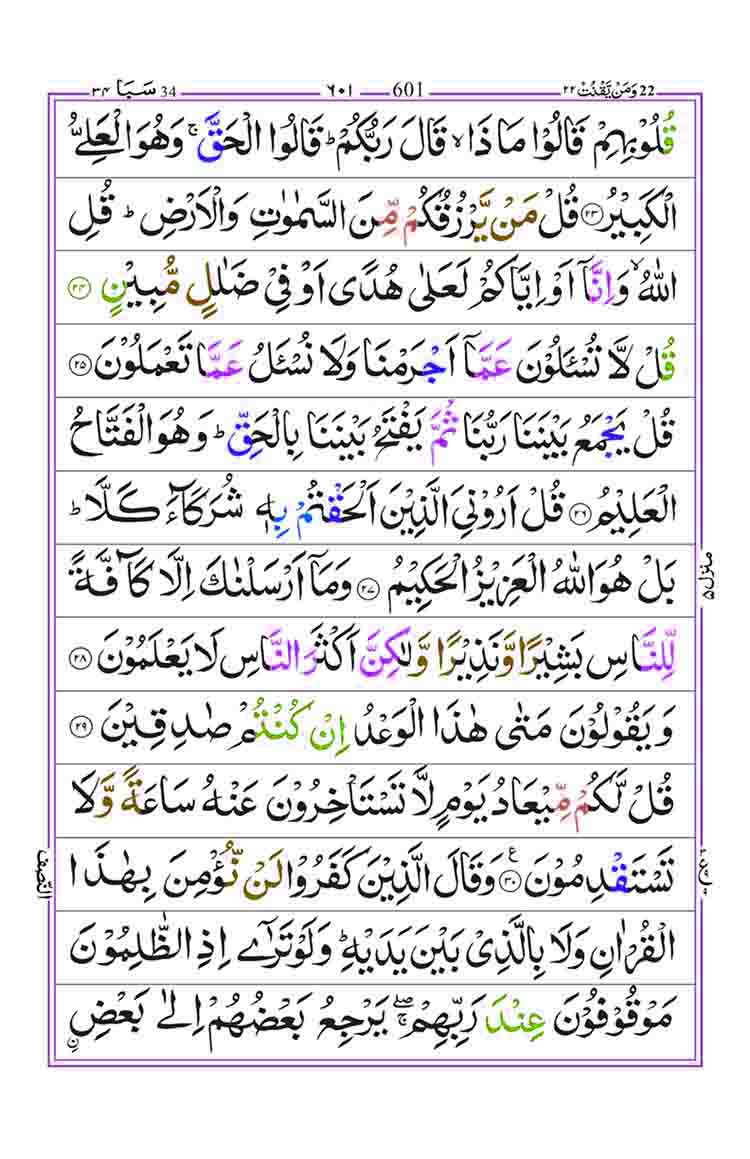 ٣٤ سَبَا 34 ٦٠١ 601 ٢٢ وَمَنْ يَّقْنُتْ 22
قُلُوْبِهِمْ قَالُوْا مَاذَا ۙ قَالَ رَبُّكُمْ ؕ قَالُوا الْحَقَّ ۚ وَهُوَ الْعَلِىُّ
الْكَبِيْرُ ﴿۲۳﴾ قُلْ مَنْ يَّرْزُقُكُمْ مِّنَ السَّمٰوٰتِ وَالْاَرْضِ ؕ قُلِ
اللّٰهُ ۙ وَاِنَّاۤ اَوْ اِيَّاكُمْ لَعَلٰى هُدًى اَوْ فِىْ ضَلٰلٍ مُّبِيْنٍ ﴿۲۴﴾
قُلْ لَّا تُسْـَٔلُوْنَ عَمَّاۤ اَجْرَمْنَا وَلَا نُسْـَٔلُ عَمَّا تَعْمَلُوْنَ ﴿۲۵﴾
قُلْ يَجْمَعُ بَيْنَنَا رَبُّنَا ثُمَّ يَفْتَحُ بَيْنَنَا بِالْحَقِّ ؕ وَهُوَ الْفَتَّاحُ
الْعَلِيْمُ ﴿۲۶﴾ قُلْ اَرُوْنِىَ الَّذِيْنَ اَلْحَقْتُمْ بِهٖ شُرَكَآءَ كَلَّا ؕ
بَلْ هُوَ اللّٰهُ الْعَزِيْزُ الْحَكِيْمُ ﴿۲۷﴾ وَمَاۤ اَرْسَلْنٰكَ اِلَّا كَآفَّةً
لِّلنَّاسِ بَشِيْرًا وَّنَذِيْرًا وَّلٰكِنَّ اَكْثَرَ النَّاسِ لَا يَعْلَمُوْنَ ﴿۲۸﴾
وَيَقُوْلُوْنَ مَتٰى هٰذَا الْوَعْدُ اِنْ كُنْتُمْ صٰدِقِيْنَ ﴿۲۹﴾
قُلْ لَّكُمْ مِّيْعَادُ يَوْمٍ لَّا تَسْتَاْخِرُوْنَ عَنْهُ سَاعَةً وَّلَا
تَسْتَقْدِمُوْنَ ﴿۳۰﴾ ع وَقَالَ الَّذِيْنَ كَفَرُوْا لَنْ نُّؤْمِنَ بِهٰذَا
الْقُرْاٰنِ وَلَا بِالَّذِىْ بَيْنَ يَدَيْهِ ؕ وَلَوْ تَرٰٓى اِذِ الظّٰلِمُوْنَ
مَوْقُوْفُوْنَ عِنْدَ رَبِّهِمْ ۖۚ يَرْجِعُ بَعْضُهُمْ اِلٰى بَعْضِ ۨ
منزل ۵
النّصف